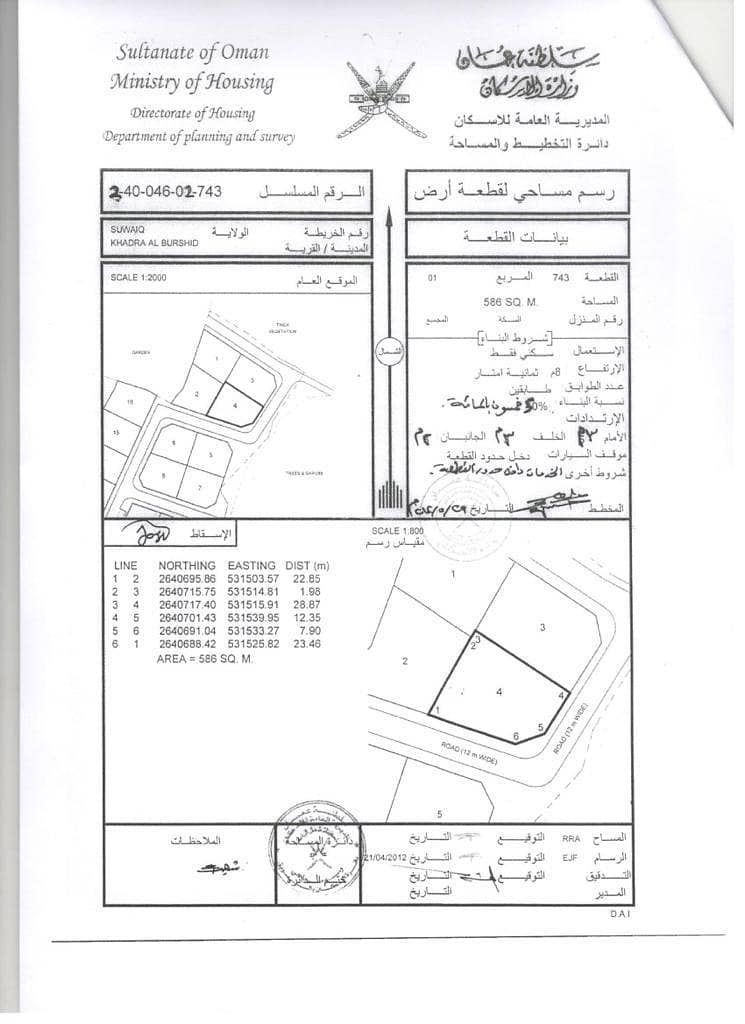 Sultanate of Oman
Ministry of Housing
Directorate of Housing
Department of planning and survey
سلطنة عمان
وزارة الإسكان
المديرية العامة للاسكان
دائرة التخطيط والمساحة
الرقم المسلسل 2-40-046-02-743
رسم مساحي لقطعة أرض
رقم الخريطة الولاية SUWAIQ
المدينة / القرية KHADRA AL BURSHID
بيانات القطعة
SCALE 1:2000 الموقع العام
THICK
VEGETATION
GARDEN
1
3
2
4
16
15
6
5
8
7
TREES & GARDEN
الشمال
القطعة 743 المربع 01
المساحة 586 SQ. M.
رقم المنزل السكة المجمع
شروط البناء
الإستعمال سكني فقط
الارتفاع 8م ثمانية امتار
عدد الطوابق طابقين
نسبة البناء 50% خمسون بالمائة.
الإرتدادات
الأمام 3م الخلف 3م الجانبان 2م
موقف السيارات دخل حدود القطعة
شروط أخرى الخدمات داخل حدود القطعة.
المخطط التاريخ
الإسقاط
SCALE 1:800
مقياس رسم
LINE NORTHING EASTING DIST (m)
1 2 2640695.86 531503.57 22.85
2 3 2640715.75 531514.81 1.98
3 4 2640717.40 531515.91 28.87
4 5 2640701.43 531539.95 12.35
5 6 2640691.04 531533.27 7.90
6 1 2640688.42 531525.82 23.46
AREA = 586 SQ. M.
1
3
2
3
2
4
4
1
5
6
ROAD (12 m WIDE)
ROAD (12 m WIDE)
5
الملاحظات
دائرة المساحة
ختم الدائرة
المساح RRA التوقيع التاريخ
الرسام EJF التوقيع التاريخ 21/04/2012
التدقيق التوقيع التاريخ
المدير التاريخ
D.A.I